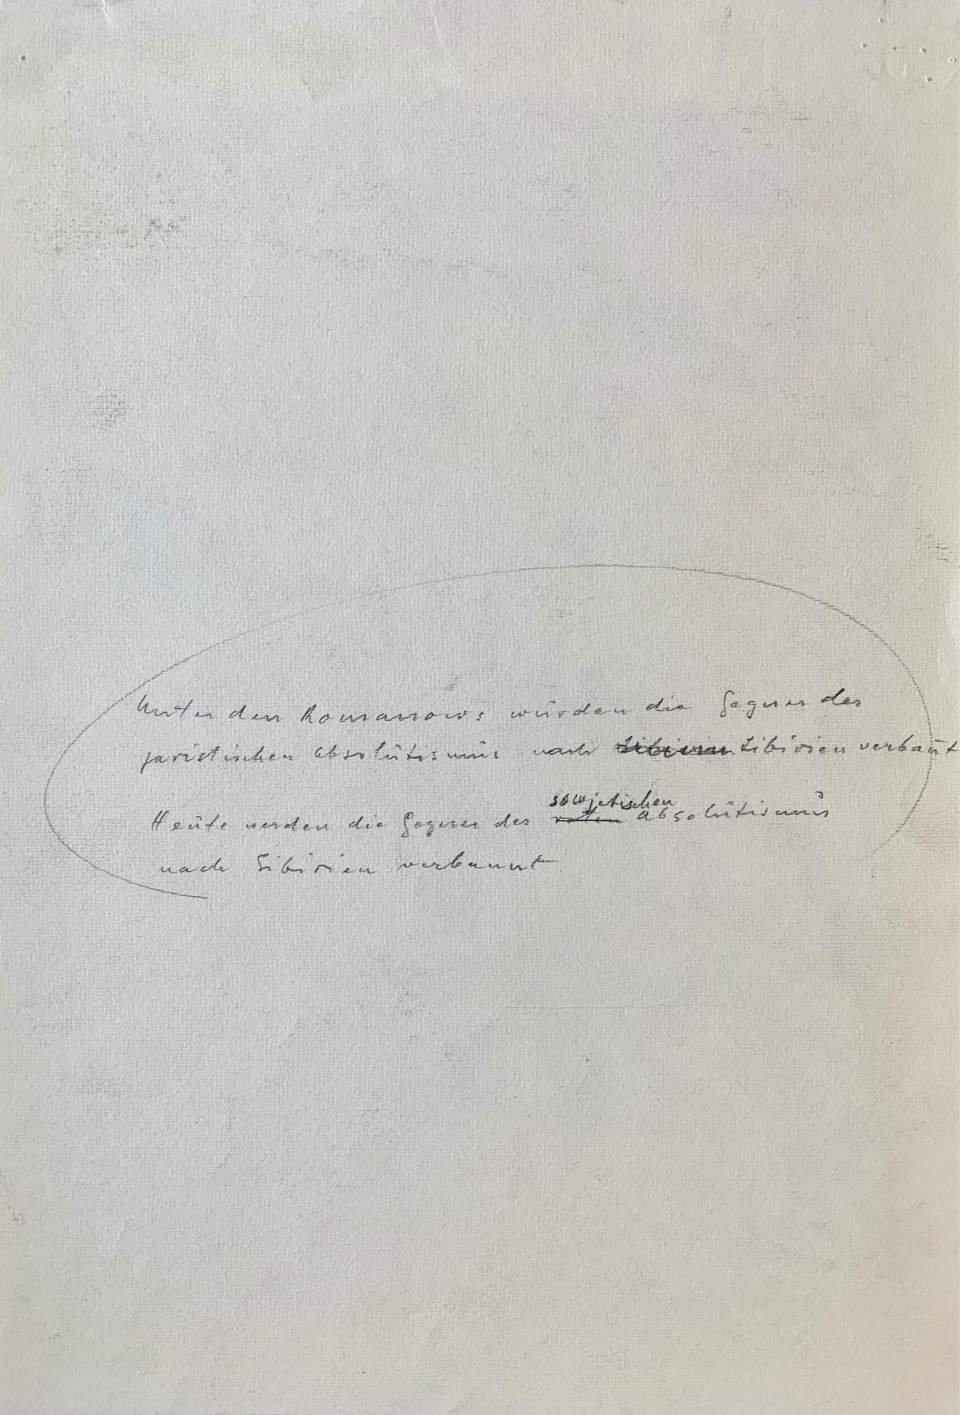 Unter den Romanows wurden die Gegner des
zaristischen Absolutismus nach Sibirien Sibirien verbannt
Heute werden die Gegner des roten sowjetischen Absolutismus
nach Sibirien verbannt